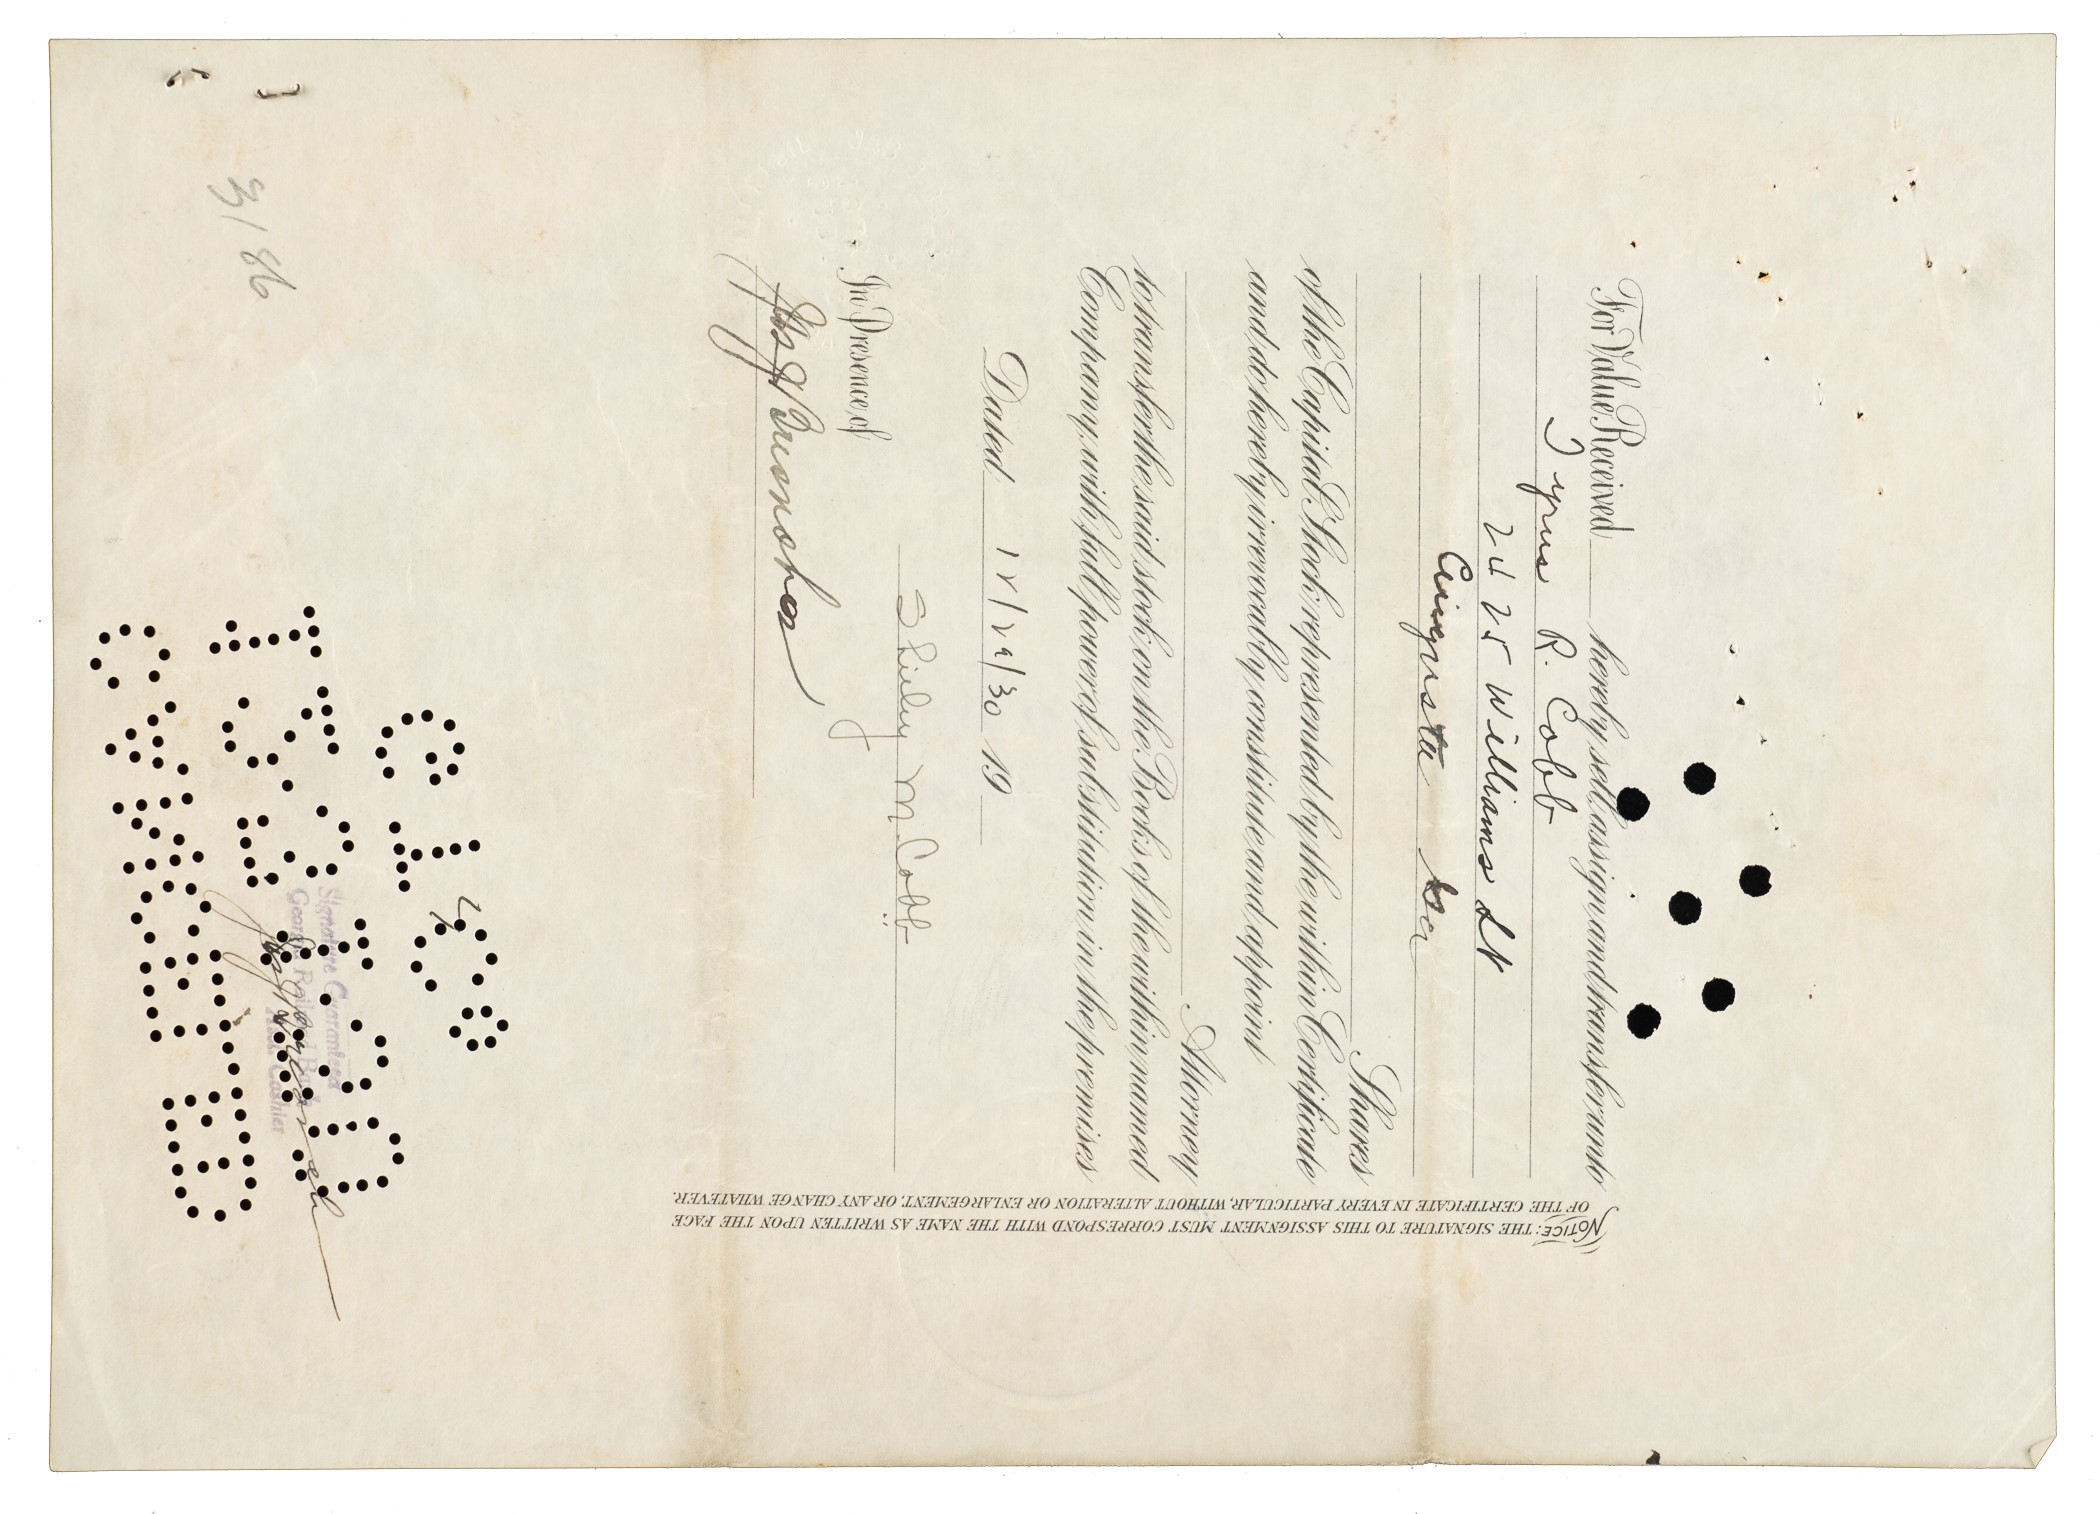 For Value Received hereby sell, assign and transfer unto
Tyrus R. Cobb
2425 Williams St
Augusta Ga
Shares
of the Capital Stock represented by the within Certificate
and do hereby irrevocably constitute and appoint
Attorney
to transfer the said stock on the Books of the within named
Company with full power of substitution in the premises
Dated 12/29/30 19
Shirley M Cobb
In Presence of
NOTICE: THE SIGNATURE TO THIS ASSIGNMENT MUST CORRESPOND WITH THE NAME AS WRITTEN UPON THE FACE
OF THE CERTIFICATE IN EVERY PARTICULAR, WITHOUT ALTERATION OR ENLARGEMENT, OR ANY CHANGE WHATEVER.
3186
Signature Guaranteed
Georgia Railroad Bank
Cashier